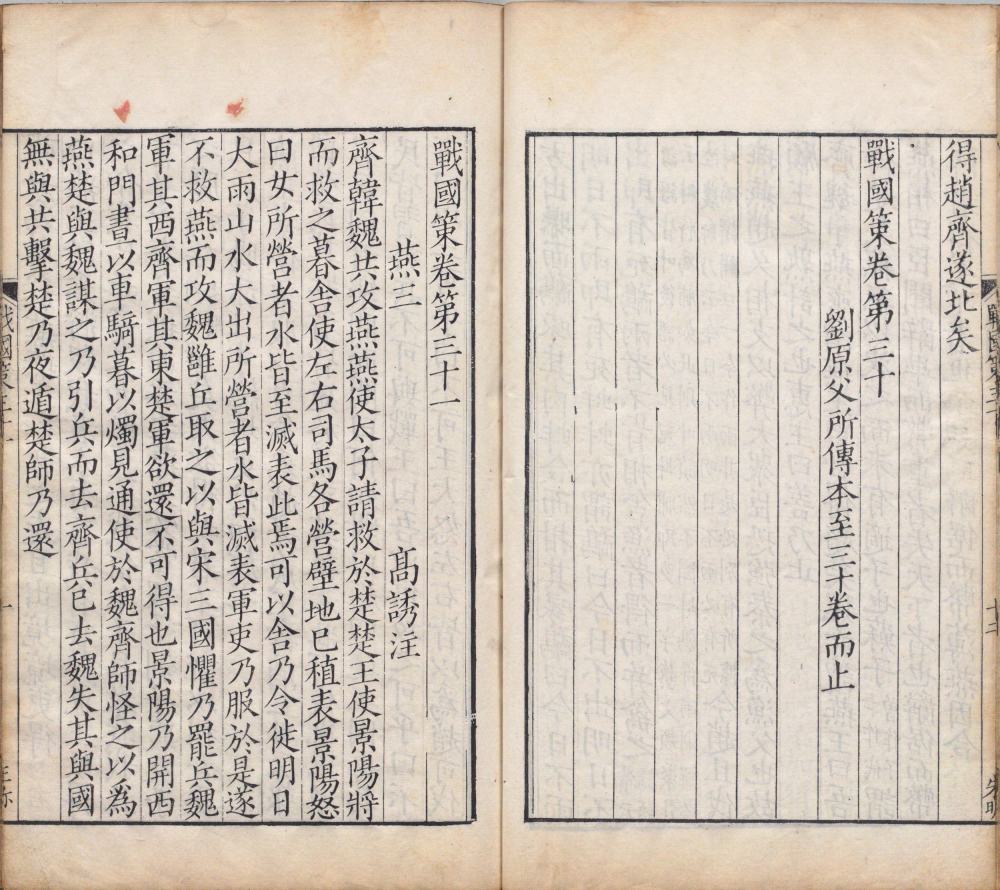 得趙齊遂北矣
戰國策卷第三十
劉原父所傳本至三十卷而止
戰國策卷第三十一
燕三 高誘注
齊韓魏共攻燕燕使太子請救於楚楚王使景陽將
而救之暮舍使左右司馬各營壁地已稙表景陽怒
曰女所營者水皆至滅表此焉可以舍乃令徙明日
大雨山水大出所營者水皆滅表軍吏乃服於是遂
不救燕而攻魏雝丘取之以與宋三國懼乃罷兵魏
軍其西齊軍其東楚軍欲還不可得也景陽乃開西
和門晝以車騎暮以燭見通使於魏齊師怪之以為
燕楚與魏謀之乃引兵而去齊兵已去魏失其與國
無與共擊楚乃夜遁楚師乃還